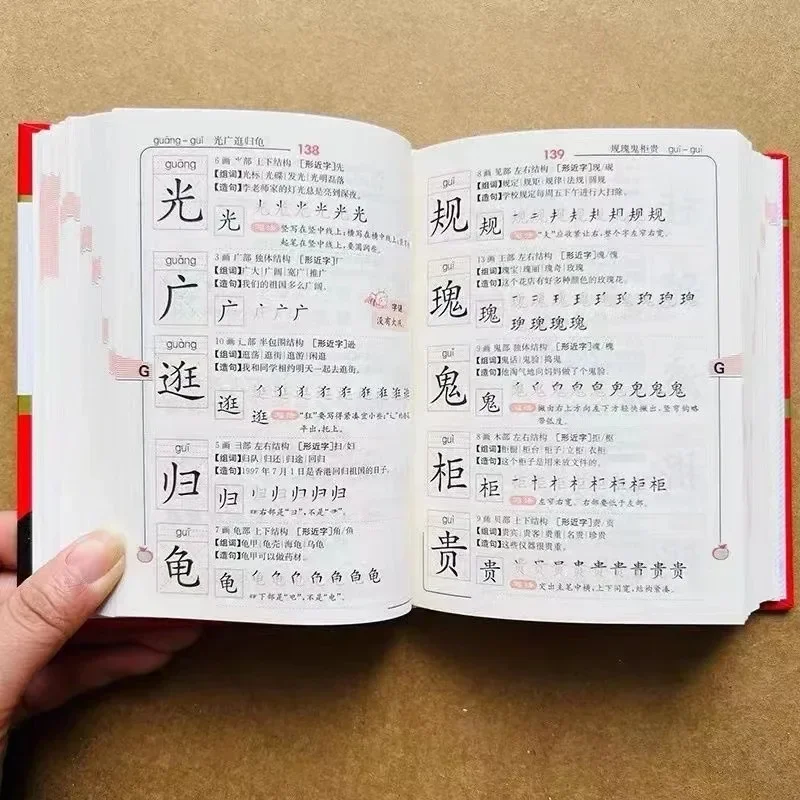 guāng-guī 光广逛归龟
138
guāng
光
6画 ⺌部 上下结构 [形近字]先
[组词]光标|光碟|发光|光明磊落
[造句]李老师家的灯光总是亮到深夜。
光
写法 竖写在竖中线上;横写在横中线上;
起笔在竖中线上,要圆润些。
guǎng
广
3画 广部 独体结构 [形近字]厂
[组词]广大|广阔|宽广|推广
[造句]我们的祖国多么广阔。
广
字谜
没有大瓦
guàng
逛
10画 辶部 半包围结构 [形近字]逊
[组词]逛荡|逛街|逛游|闲逛
[造句]我和同学相约明天一起去逛街。
逛
写法 "狂"要写得紧凑窄小些;"辶"的
平出,托上。
G
guī
归
5画 彐部 左右结构 [形近字]扫/妇
[组词]归队|归还|归途|回归
[造句]1997年7月1日是香港回归祖国的日子。
归
右部是"彐",不是"⺕"。
guī
龟
7画 龟部 上下结构 [形近字]角/鱼
[组词]龟甲|龟壳|海龟|乌龟
[造句]龟甲可以做药材。
龟
下部是"电",不是"电"。
139
规瑰鬼柜贵 guī-guì
guī
规
8画 见部 左右结构 [形近字]现/觇
[组词]规定|规矩|规律|法规|圆规
[造句]学校规定每周五下午进行大扫除。
规
写法 "夫"应收紧让右,整个字左窄右宽。
guī
瑰
13画 王部 左右结构 [形近字]魂/愧
[组词]瑰宝|瑰丽|瑰奇|玫瑰
[造句]这个花店有好多种颜色的玫瑰花。
瑰
guǐ
鬼
9画 鬼部 独体结构 [形近字]魂/槐
[组词]鬼话|鬼脸|捣鬼
[造句]他淘气地向妈妈做了个鬼脸。
鬼
写法 撇由右上方向左下方轻快撇出,竖弯钩略
带弧度。
G
guì
柜
8画 木部 左右结构 [形近字]拒/框
[组词]柜橱|柜台|柜子|立柜|衣柜
[造句]这个柜子是用来放文件的。
柜
写法 左窄右宽。右部要低于左部。
guì
贵
9画 贝部 上下结构 [形近字]责/贡
[组词]贵宾|贵客|贵重|名贵|珍贵
[造句]这些仪器很贵重。
贵
写法 突出主笔中横,上下同宽,结构紧凑。